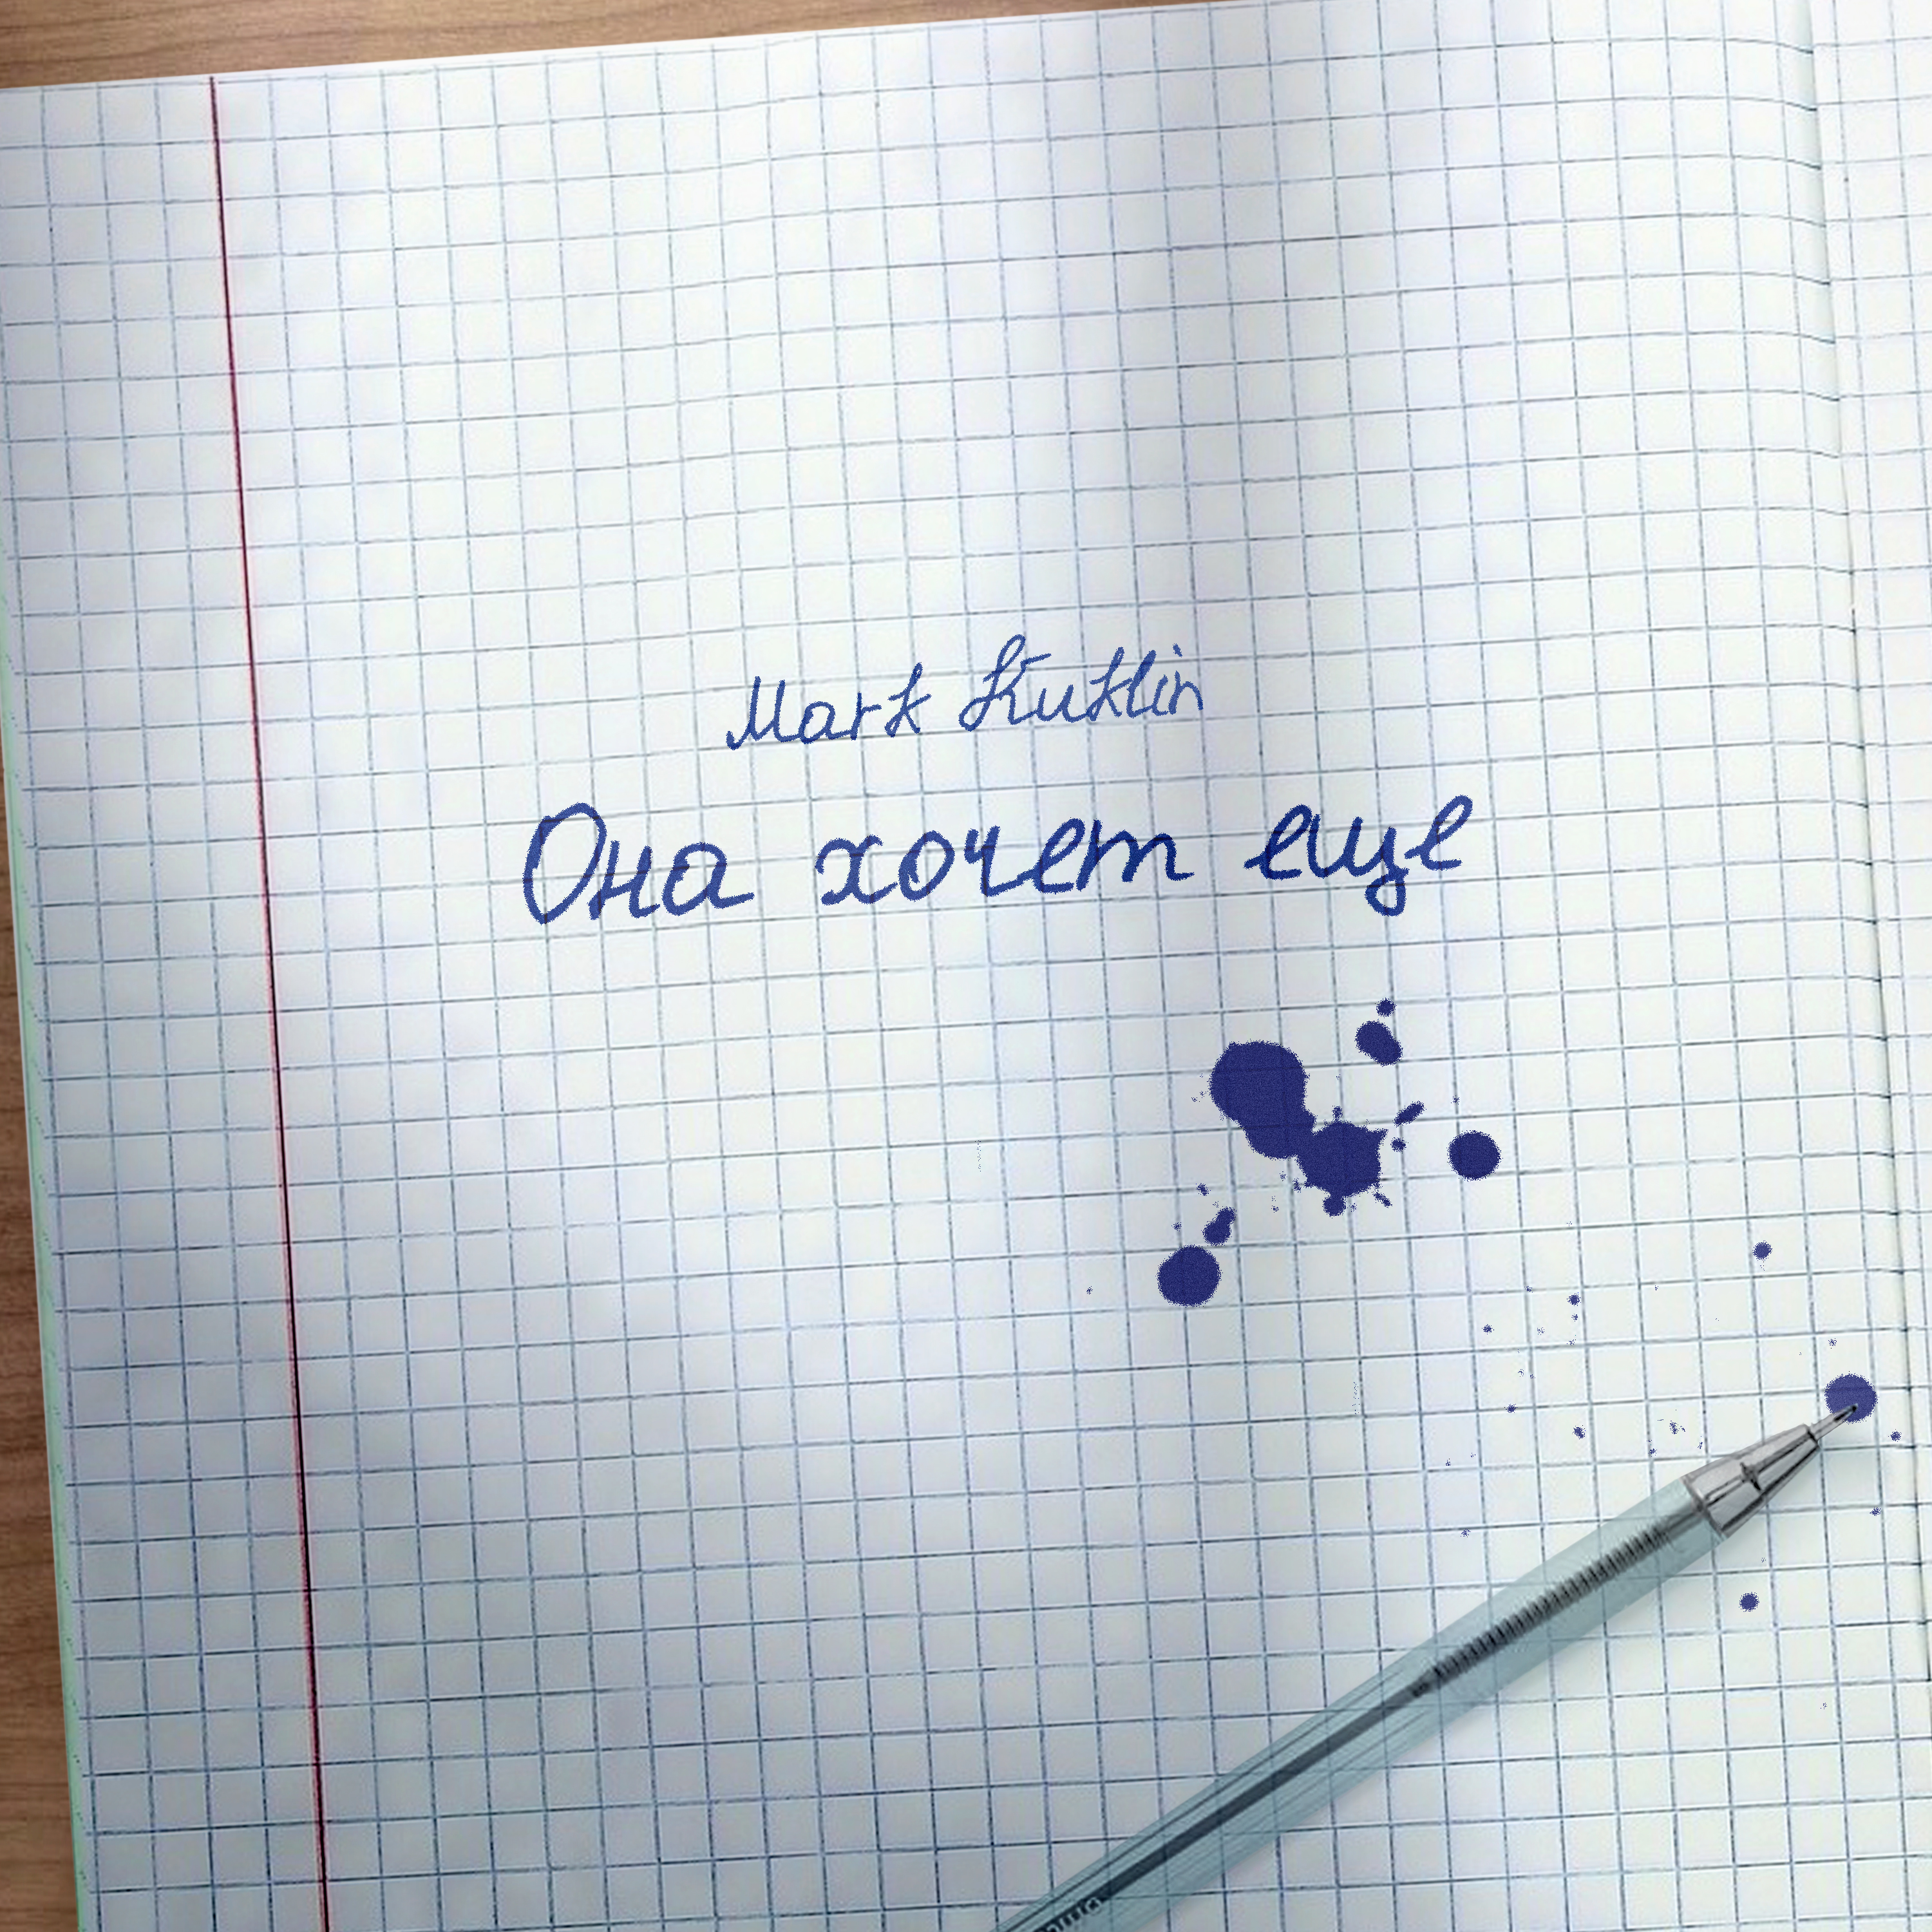 Mark Kuklin
Она хочет еще